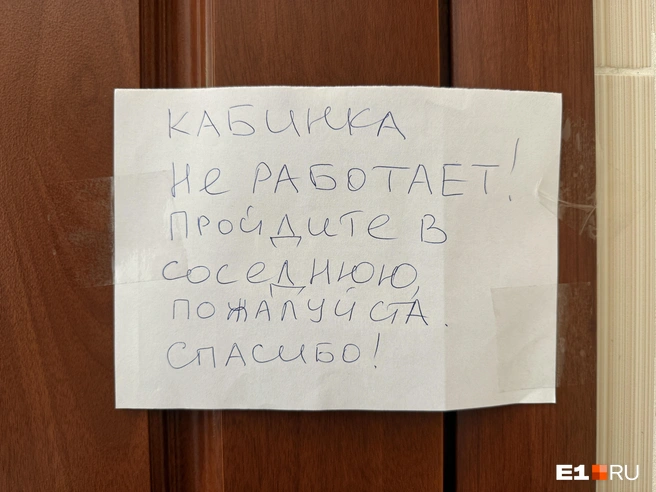 КАБИНКА
Не РАБОТАЕТ!
ПРОЙДИТЕ В
СОСЕДНЮЮ,
ПОЖАЛУЙСТА.
СПАСИБО!
E1.RU